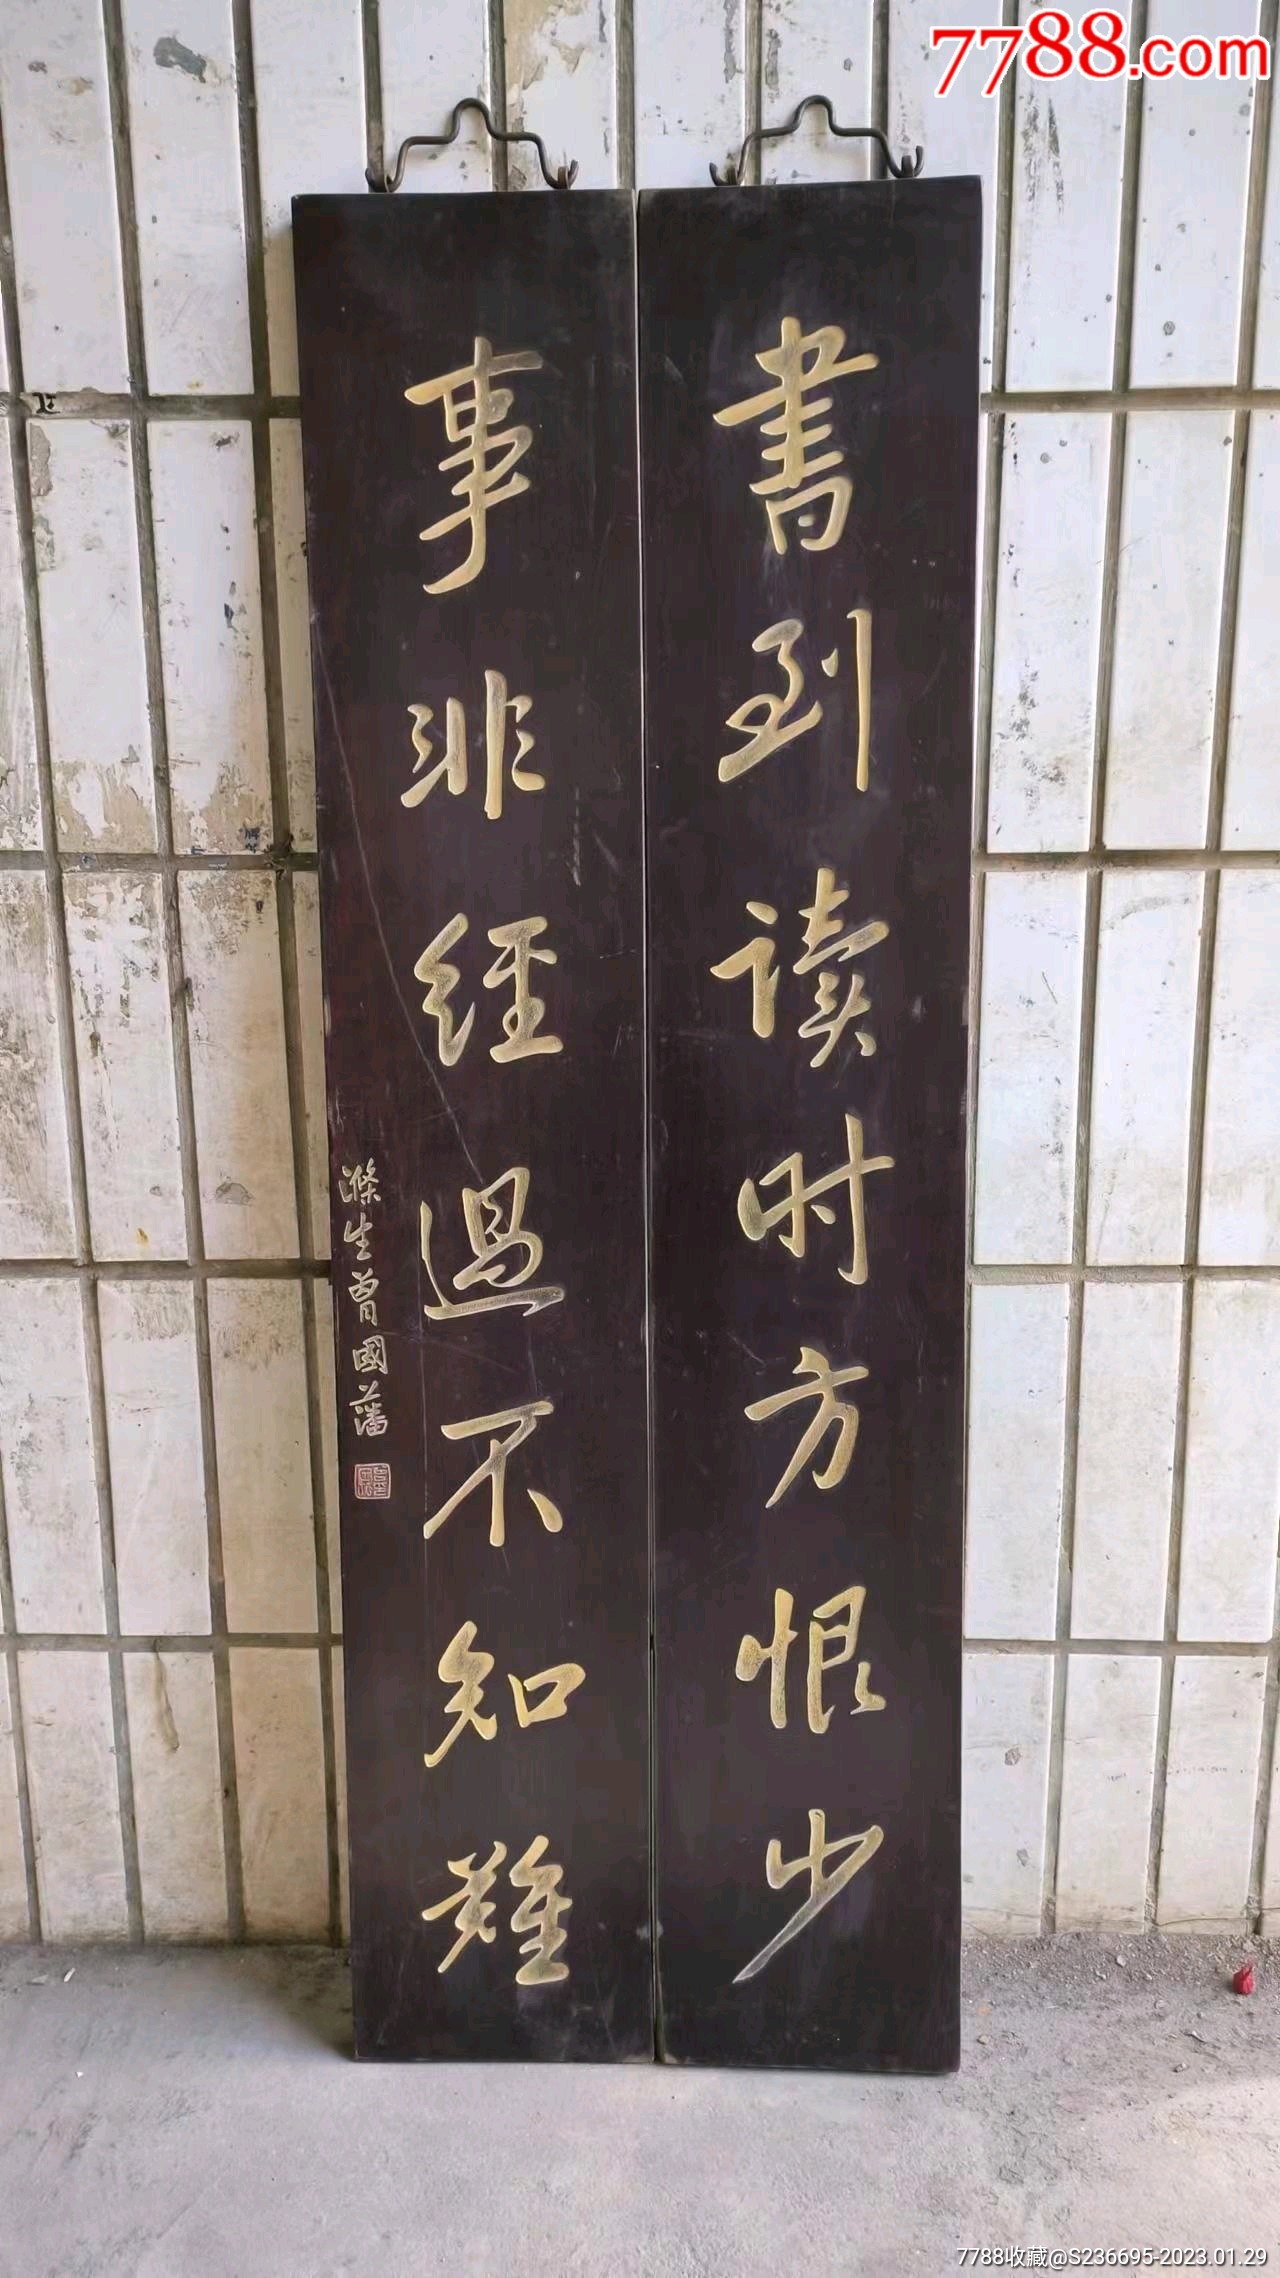 7788.com
書到读时方恨少
事非経過不知難
滌生曾國藩
7788收藏@S236695-2023.01.29